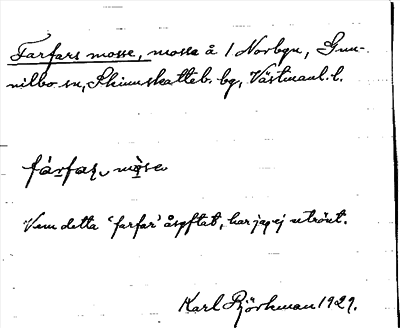 Farfars mosse, mosse å 1 Norbgn, Gun-
nilbo sn, Skinnskatteb. bg, Västmanl. l.
fàrfaṣ mòse
Vem detta 'farfar' åsyftat, har jag ej utrönt.
Karl Björkman 1929.